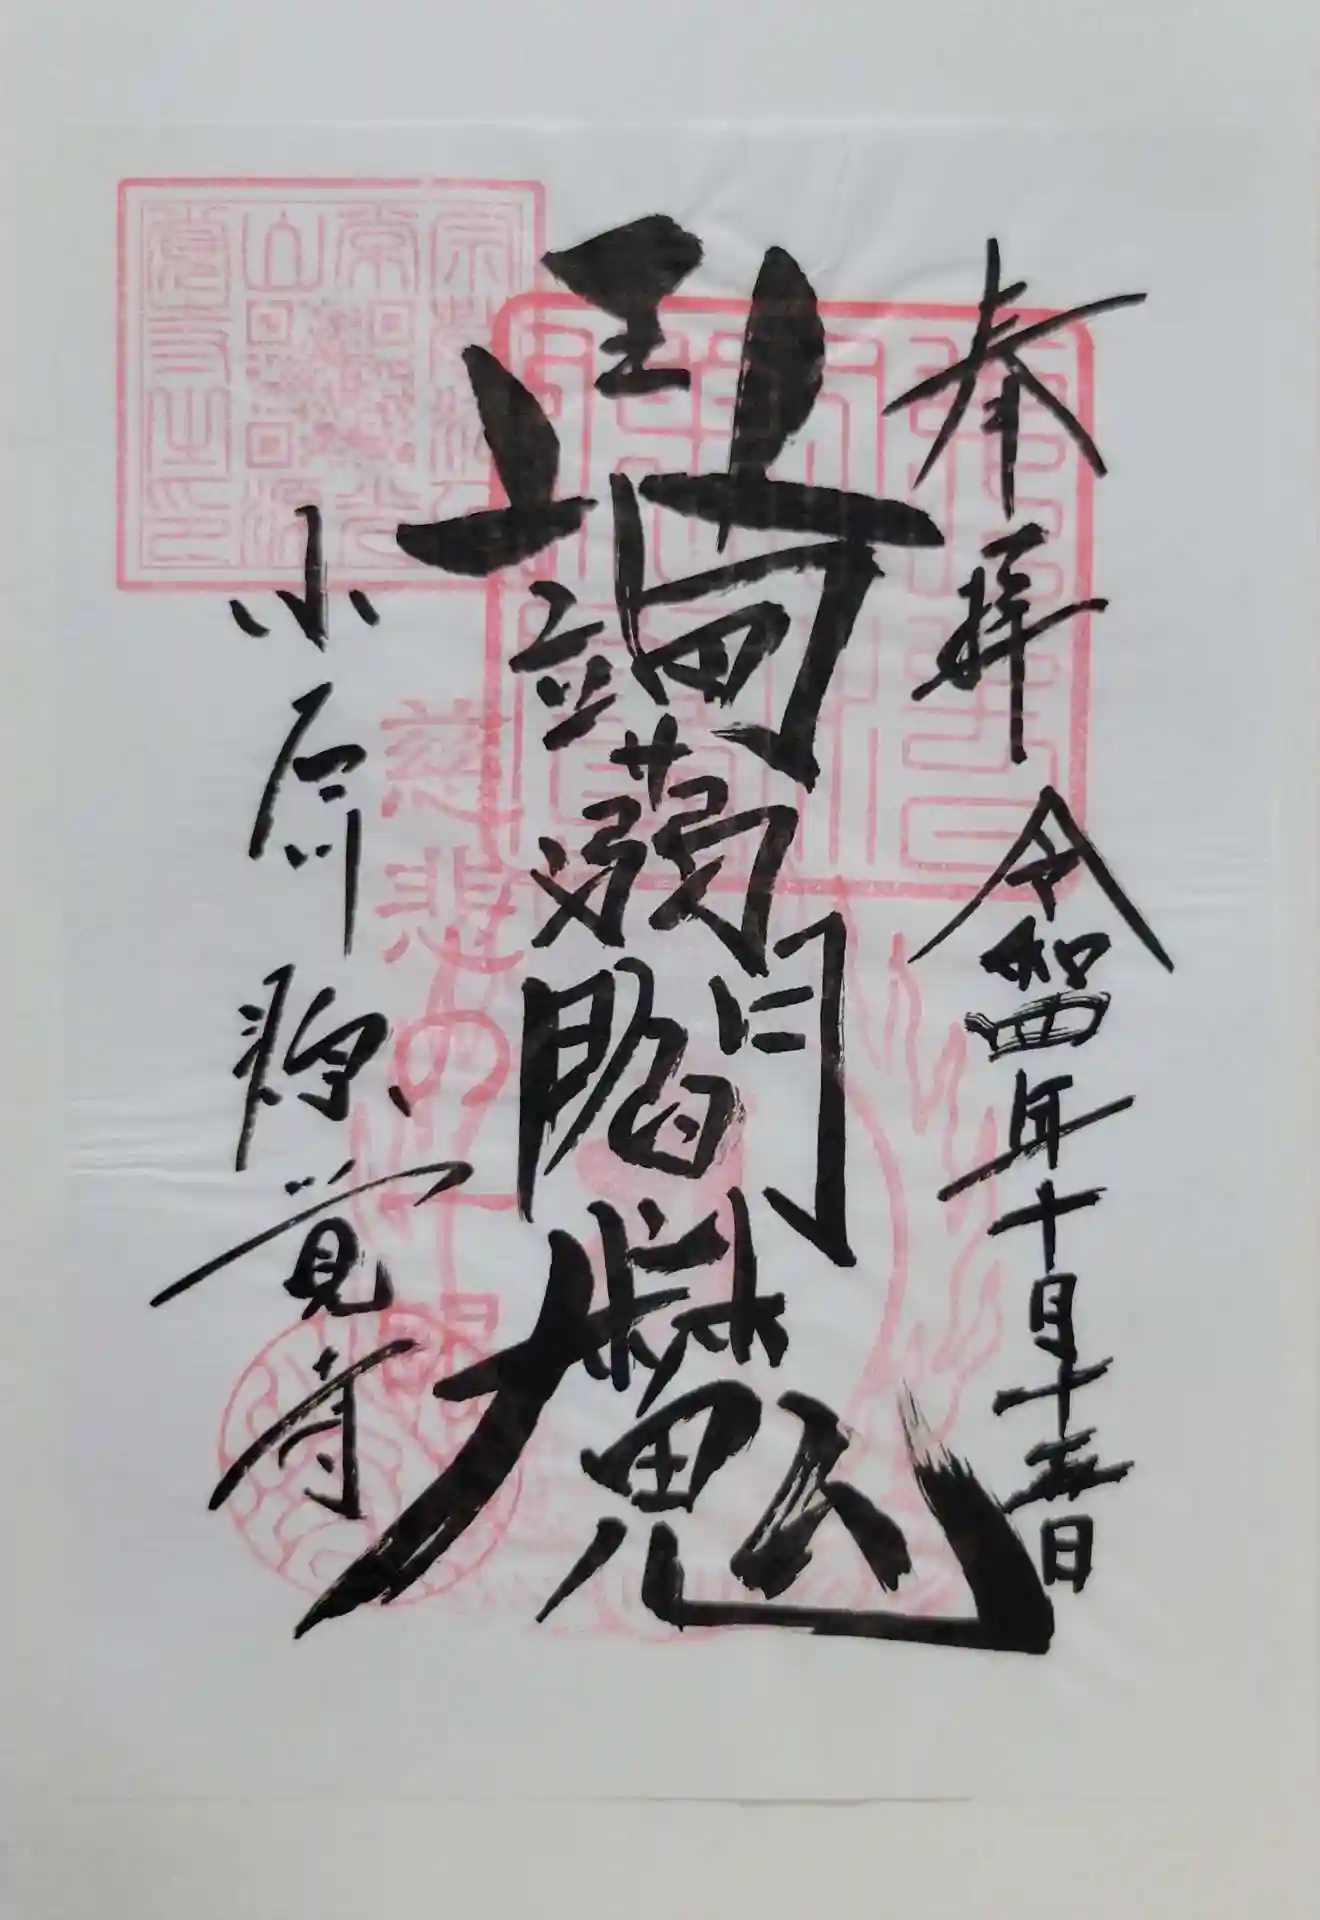 奉拝 令和四年十月十五日
蒟蒻閻魔
小石川 源覚寺
佛法僧寶
慈悲の